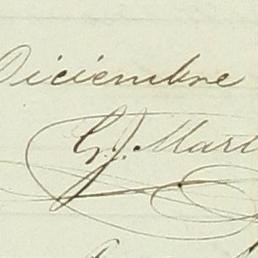 Diciembre
G. J. Mart